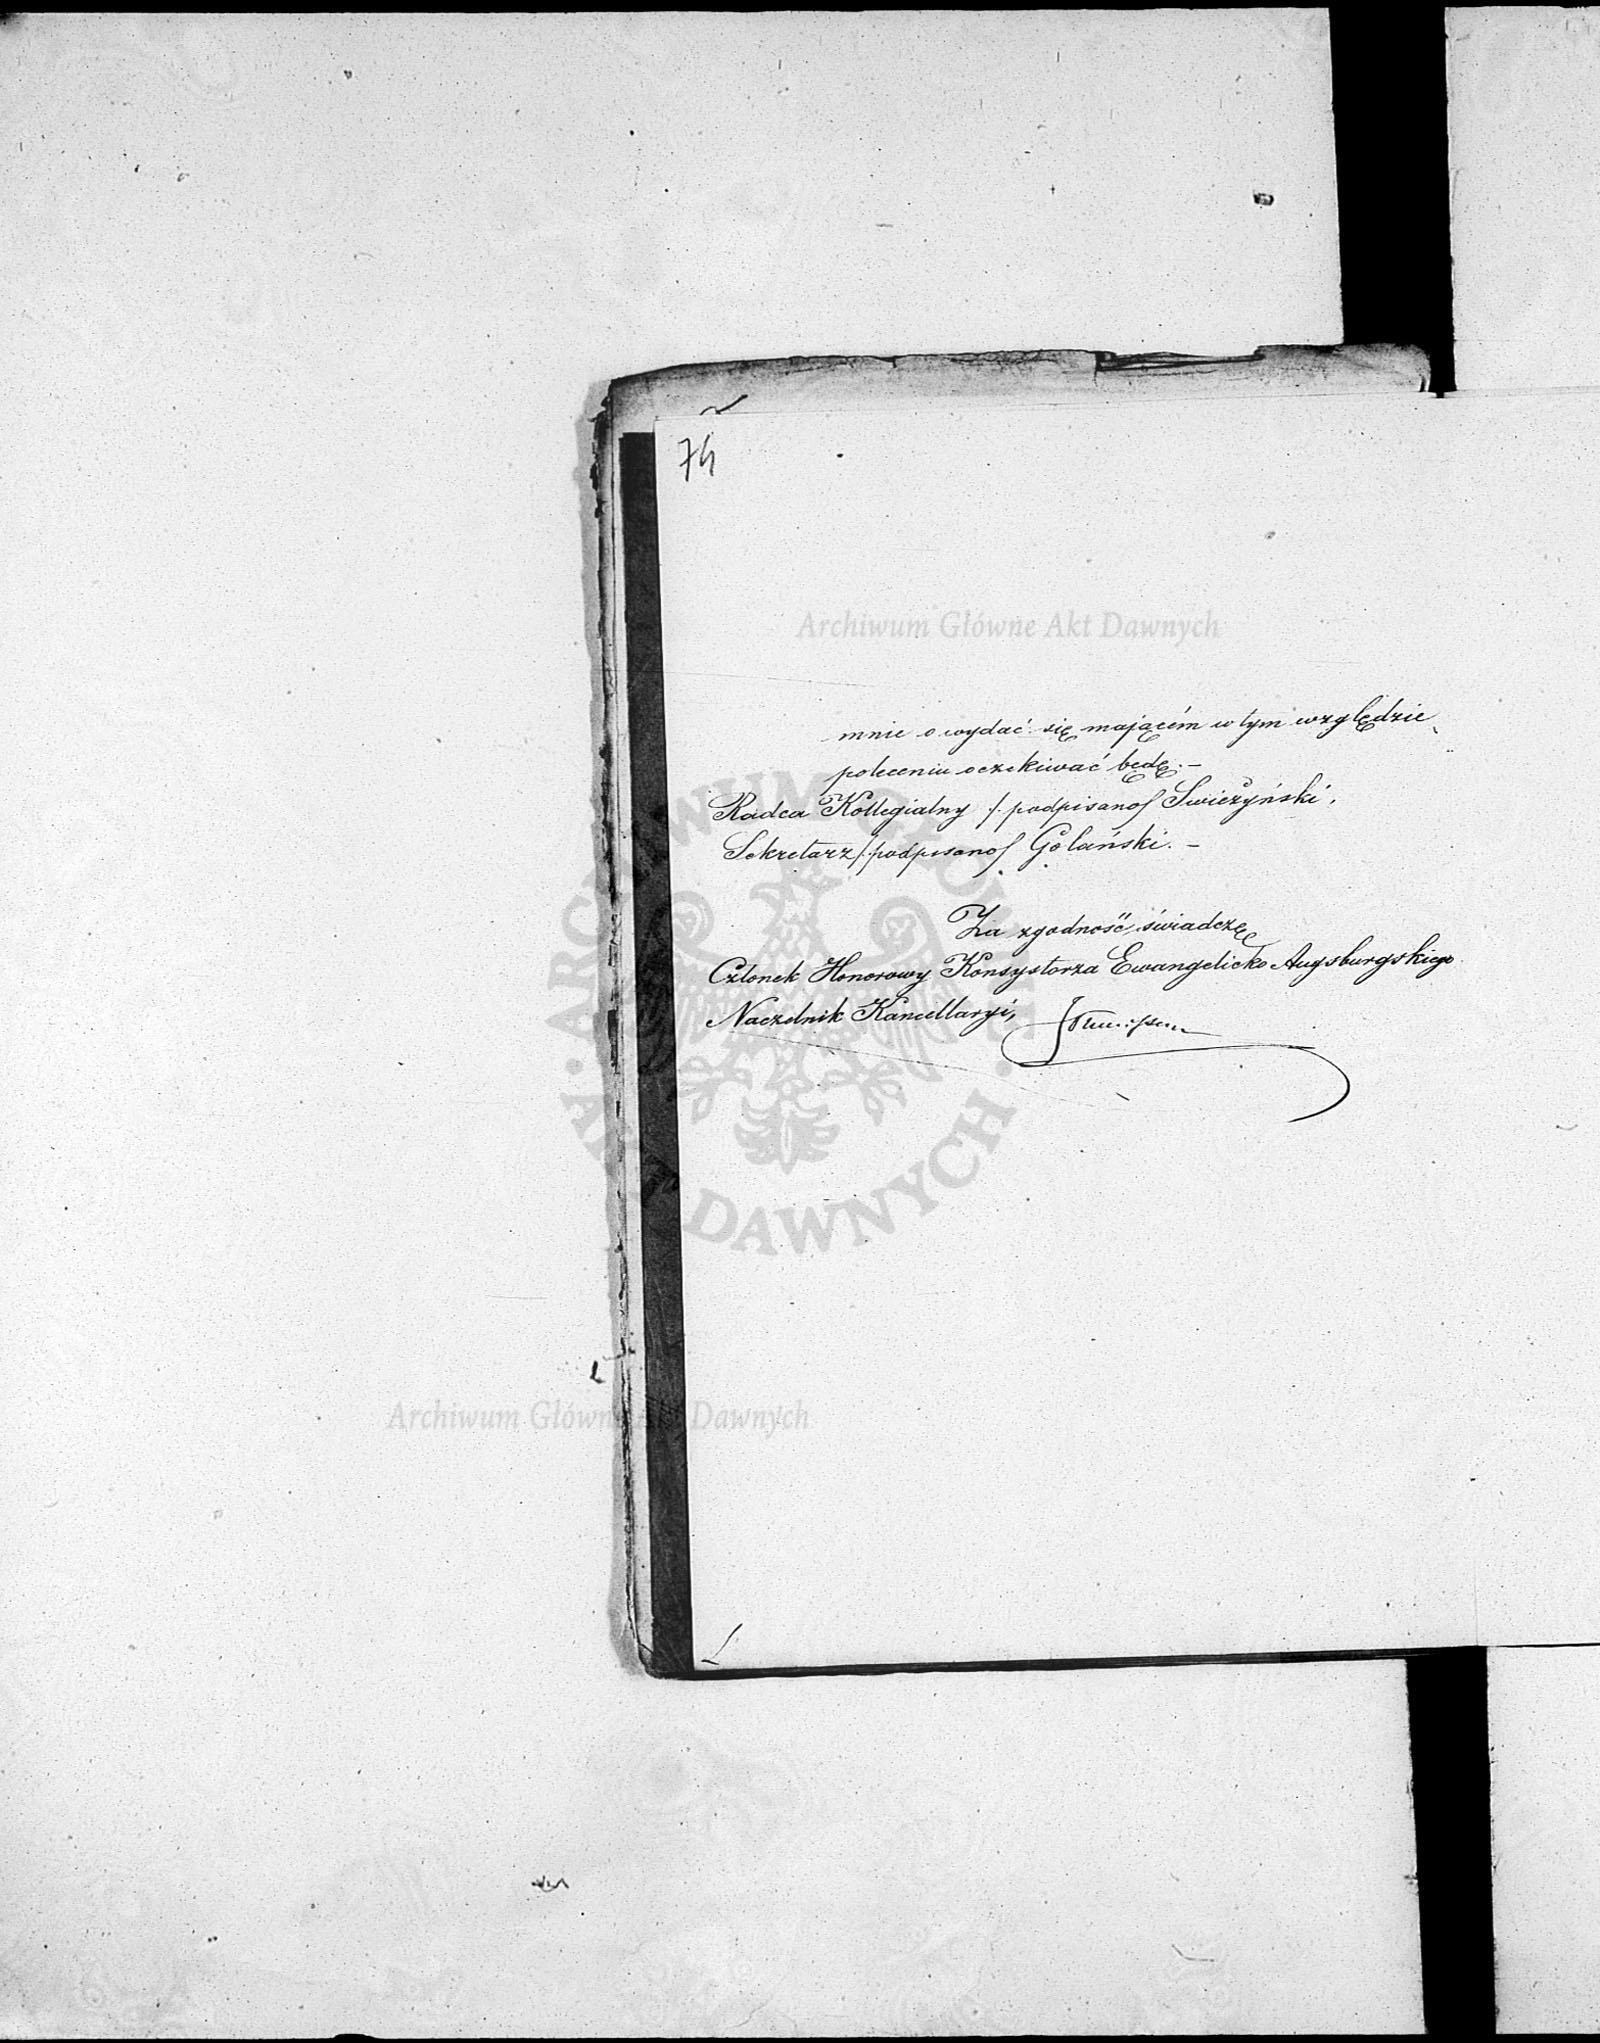 74
Archiwum Główne Akt Dawnych
mnie o wydać się mającém w tym względzie
poleceniu oczekiwać będę.—
Radca Kollegialny /:podpisano/ Swieżyński.
Sekretarz /:podpisano/ Golański.—
Za zgodność świadczę
Członek Honorowy Konsystorza Ewangelicko Augsburgskiego
Naczelnik Kancellaryi,
ARCHIWUM GŁÓWNE AKT DAWNYCH
Archiwum Główne Akt Dawnych